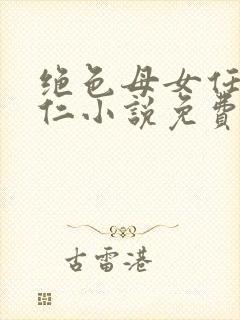 绝色母女任
仁小説免費
古雷港